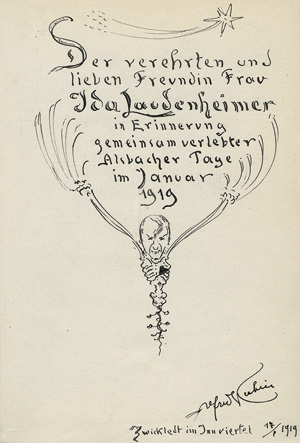 Der verehrten und
lieben Freundin Frau
Ida Laudenheimer
in Erinnerung
gemeinsam verlebter
Alsbacher Tage
im Januar
1919
Alfred Kubin
Zwickledt im Innviertel 17/I 1919